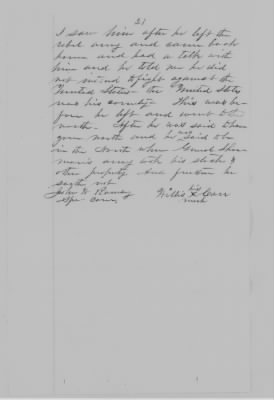 21
I saw him after he left the
rebel army and came back
home and had a talk with
him and he told me he did
not intend to fight against the
United States the United States
was his country. This was be-
fore he left and went to the
north. After he was said to have
gone north and he was said to be
in the North when Genl Sher-
man's army took his stock &
other property. And further he
sayth not
John W Ramsey Willis his X Carr
Spe. Comr. mark